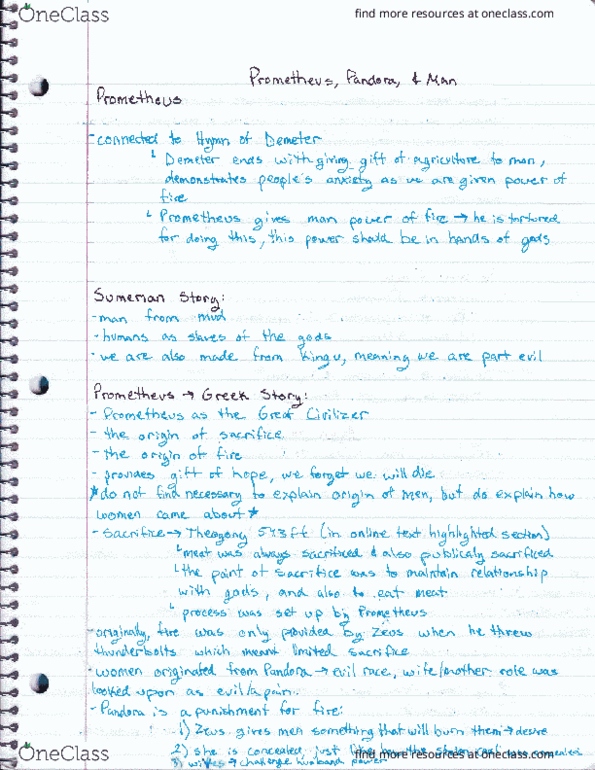 OneClass
find more resources at oneclass.com
Prometheus, Pandora, & Man
Prometheus
- connected to Hymn of Demeter
Demeter ends with giving gift of agriculture to man,
demonstrates people's anxiety as we are given power of
fire
Prometheus gives man power of fire → he is tortured
for doing this, this power should be in hands of gods
Sumerian Story:
- man from mud
- humans as slaves of the gods
- we are also made from Kingu, meaning we are part evil
Prometheus → Greek Story:
- Prometheus as the Great Civilizer
- the origin of sacrifice
- the origin of fire
- provides gift of hope, we forget we will die
*do not find necessary to explain origin of men, but do explain how
women came about*
- Sacrifice → Theogony 543ff (in online text highlighted section)
meat was always sacrificed & also publicaly sacrificed
the point of sacrifice was to maintain relationship
with gods, and also to eat meat
process was set up by Prometheus
- originally, fire was only provided by Zeus when he threw
thunderbolts which meant limited sacrifice
- women originated from Pandora → evil race, wife/mother role was
looked upon as evil/a pain
- Pandora is a punishment for fire:
1) Zeus gives men something that will burn them → desire
2) she is concealed just like the stolen concealed
3) wives → challenge husband power
OneClass
find more resources at oneclass.com